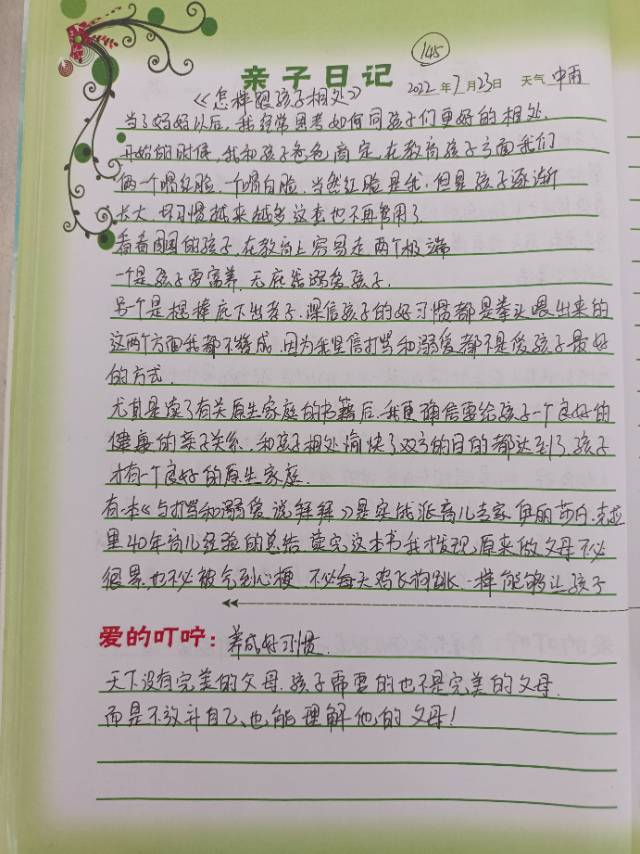 145
亲子日记 2022年7月23日 天气 中雨
《怎样跟孩子相处》
当了妈妈以后,我经常思考如何同孩子们更好的相处.
开始的时候,我和孩子爸爸商定,在教育孩子方面我们
俩一个唱红脸,一个唱白脸,当然红脸是我,但是孩子逐渐
长大,坏习惯越来越多这套也不再管用了.
看看周围的孩子,在教育上容易走两个极端
一个是孩子要富养,无底线溺爱孩子.
另一个是棍棒底下出孝子,深信孩子的好习惯都是拳头喂出来的
这两个方面我都不赞成,因为我坚信打骂和溺爱都不是爱孩子最好
的方式.
尤其是读了有关原生家庭的书籍后,我更确信要给孩子一个良好的
健康的亲子关系,和孩子相处愉快了双方的目的都达到了,孩子
才有一个良好的原生家庭.
有一本《与打骂和溺爱说拜拜》是实战派育儿专家伊丽莎白.克拉
里40年育儿经验的总结,读完这本书我才发现,原来做父母不必
很累,也不必被气到心梗,不必每天鸡飞狗跳,一样能够让孩子
爱的叮咛:养成好习惯.
天下没有完美的父母,孩子需要的也不是完美的父母.
而是不放弃自己,也能理解他的父母!